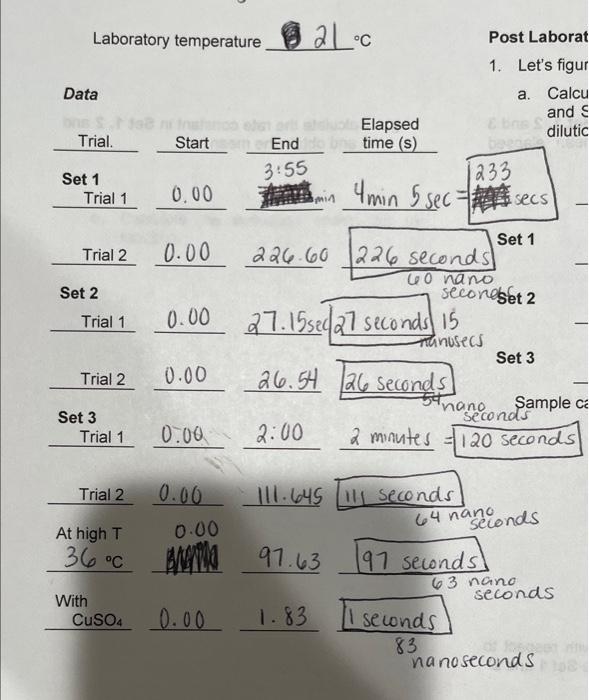 Laboratory temperature 21 °C
Post Laborat
1. Let's figur
Data
a. Calcu
and S
dilutic
Trial. Start End Elapsed time (s)
Set 1
3:55
233
Trial 1 0.00 min 4min 5 sec = secs
Set 1
Trial 2 0.00 226.60 226 seconds
60 nano
seconds
Set 2
Set 2
Trial 1 0.00 27.15sec 27 seconds 15
nanosecs
Set 3
Trial 2 0.00 26.54 26 seconds
54 nano
seconds
Sample ca
Set 3
Trial 1 0.00 2:00 2 minutes = 120 seconds
Trial 2 0.00 111.64s 111 seconds
64 nano
seconds
At high T 0.00
36 °C 97.63 97 seconds
63 nano
seconds
With
CuSO₄ 0.00 1.83 1 seconds
83
nanoseconds